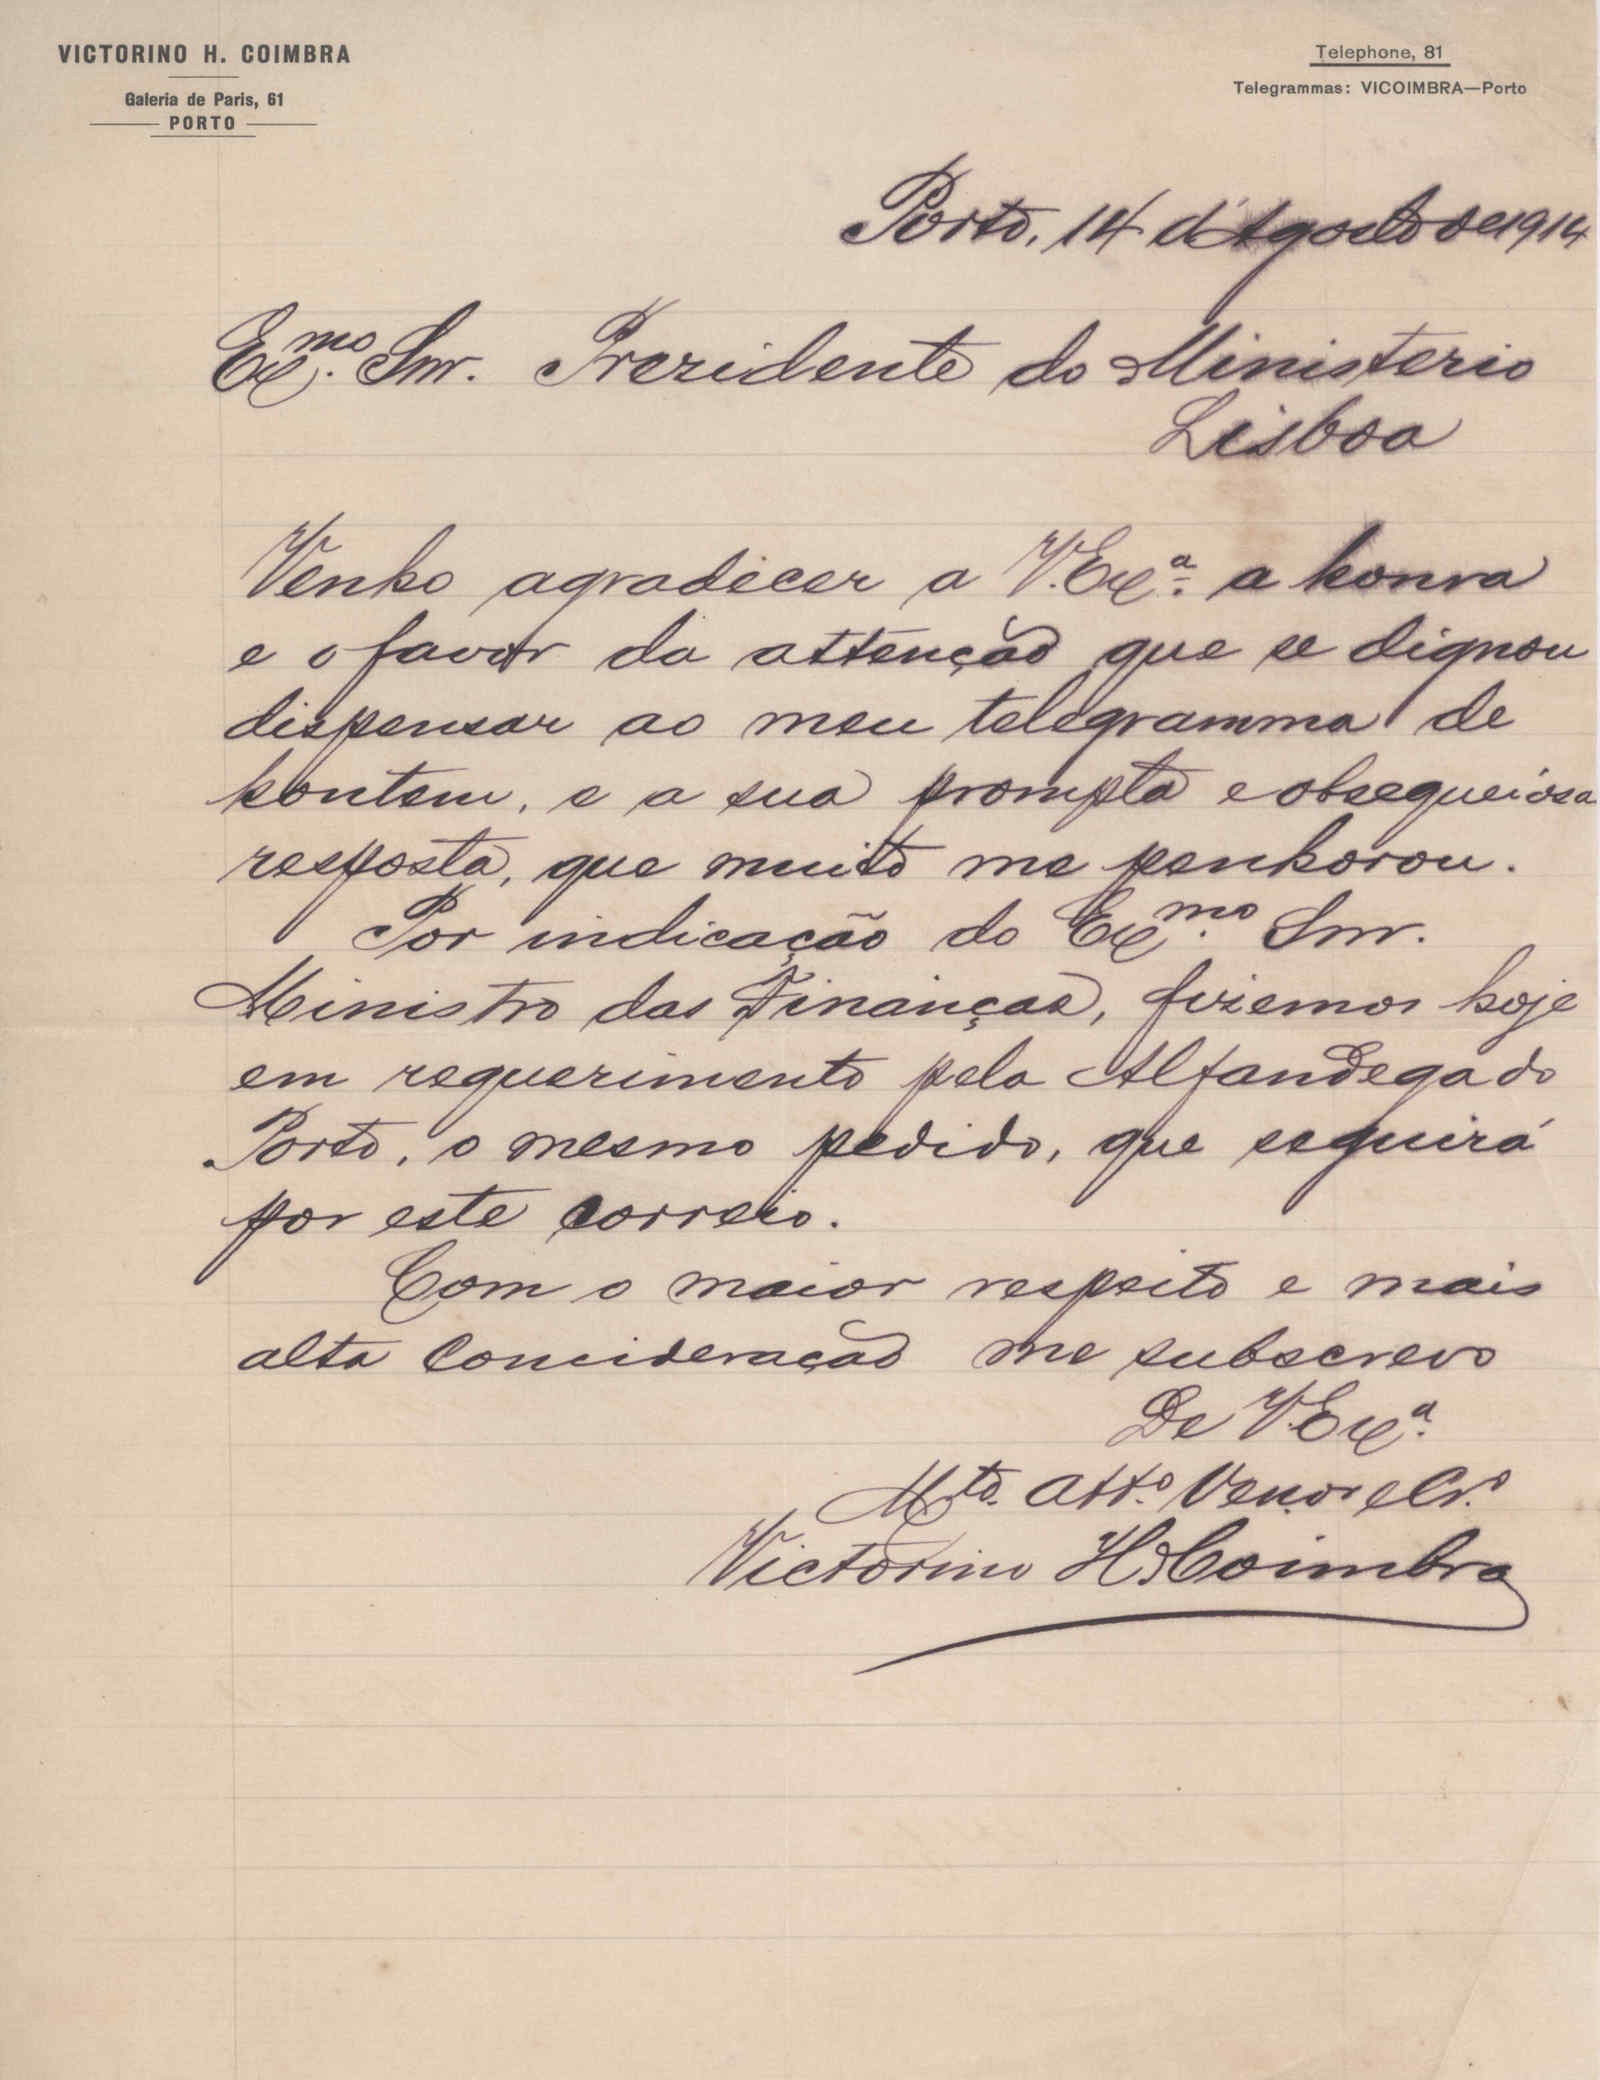 VICTORINO H. COIMBRA
Galeria de Paris, 61
PORTO
Telephone, 81
Telegrammas: VICOIMBRA—Porto
Porto, 14 d'Agosto de 1914
Ex.mo Snr. Prezidente do Ministerio
Lisboa
Venho agradecer a V. Ex.a a honra
e o favor da attenção que se dignou
dispensar ao meu telegramma de
hontem, e a sua prompta e obsequeiosa
resposta, que muito me penhorou.
Por indicação do Ex.mo Snr.
Ministro das Finanças, fizemos hoje
em requerimento pela Alfandega do
Porto, o mesmo pedido, que seguirá
por este correio.
Com o maior respeito e mais
alta concideração me subscrevo
De V. Ex.a
M.to att.o Ven.or e Cr.o
Victorino H. Coimbra